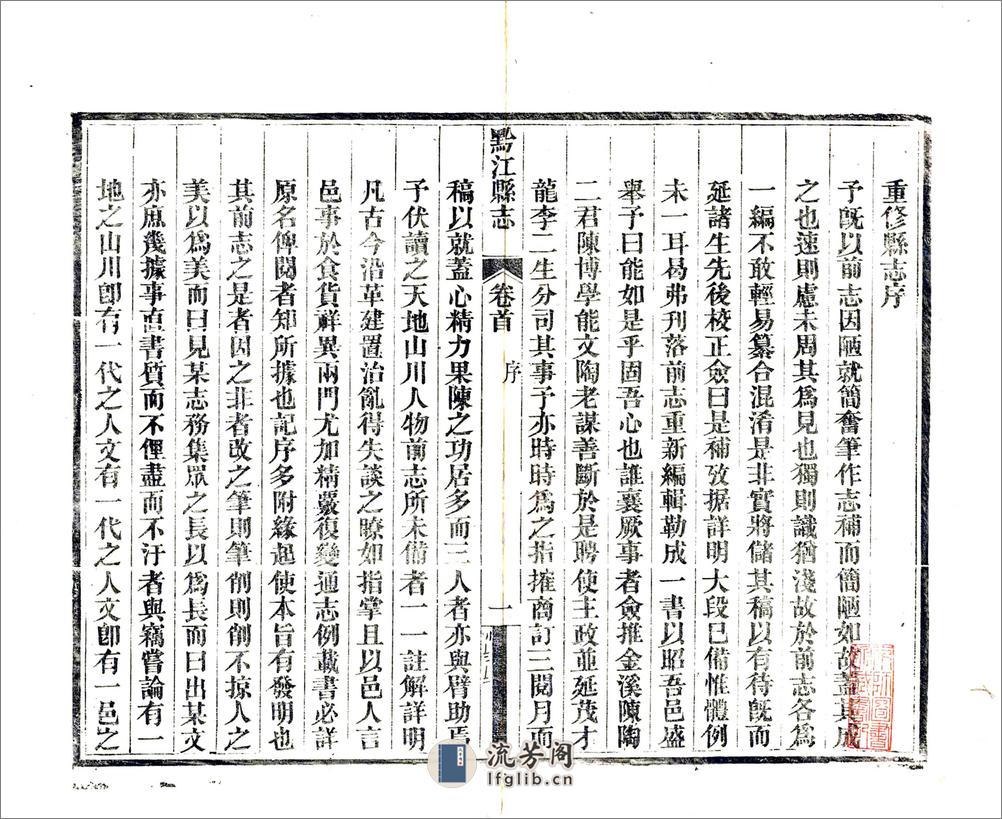 重修縣志序
予旣以前志因陋就簡奮筆作志補而簡陋如故蓋其成
之也速則慮未周其爲見也獨則識猶淺故於前志各爲
一編不敢輕易纂合混淆是非實將儲其稿以有待旣而
延諸生先後校正僉曰是補攷据詳明大段已備惟體例
未一耳曷弗刊落前志重新編輯勒成一書以昭吾邑盛
舉予曰能如是乎固吾心也誰襄厥事者僉推金溪陳陶
二君陳博學能文陶老謀善斷於是聘使主政並延茂才
龍李二生分司其事予亦時時爲之指摧商訂三閱月而
黔江縣志
卷首
序
一
稿以就蓋心精力果陳之功居多而三人者亦與臂助焉
予伏讀之天地山川人物前志所未備者一一註解詳明
凡古今沿革建置治亂得失談之瞭如指掌且以邑人言
邑事於食貨祥異兩門尤加精覈復變通志例載書必詳
原名俾閱者知所據也記序多附緣起使本旨有發明也
其前志之是者因之非者改之筆則筆削則削不掠人之
美以爲美而曰見某志務集眾之長以爲長而曰出某文
亦庶幾據事直書質而不俚盡而不汙者與竊嘗論有一
地之山川卽有一代之人文有一代之人文卽有一邑之
流芳阁
lfglib.cn